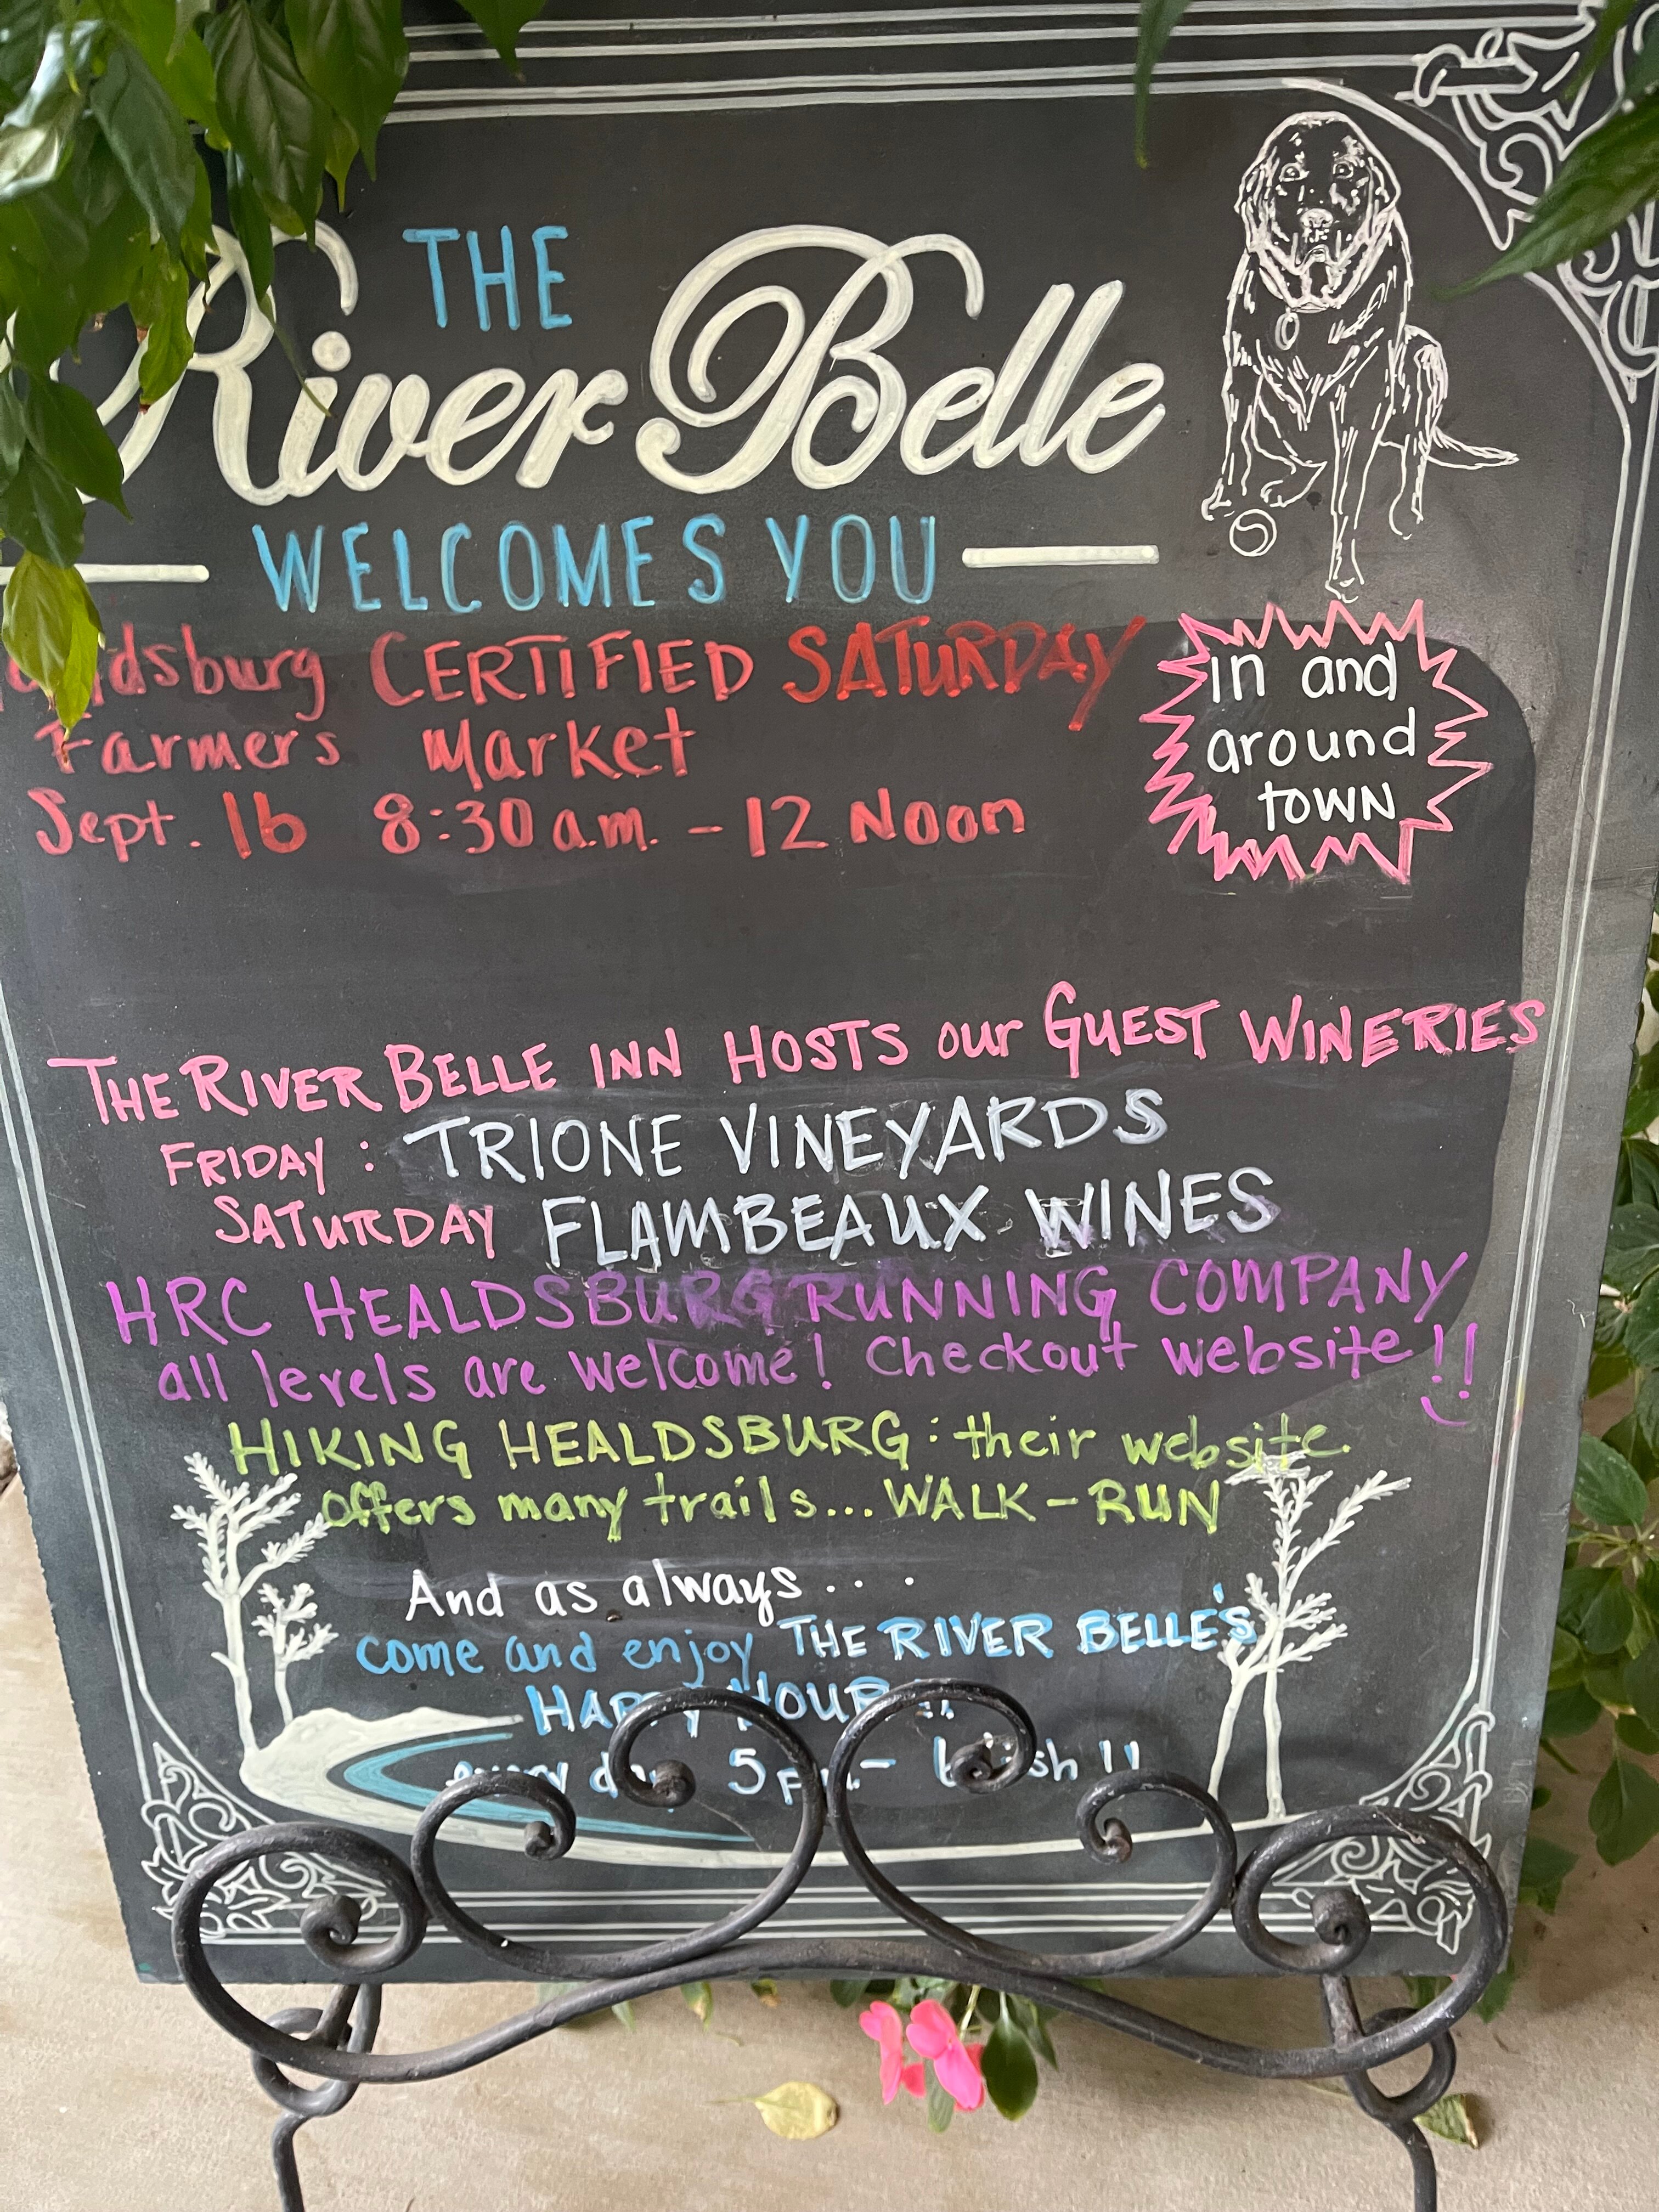 THE
River Belle
WELCOMES YOU
CERTIFIED SATURDAY
Farmers Market
Sept. 16 8:30 a.m. - 12 Noon
In and
around
town
THE RIVER BELLE INN HOSTS our GUEST WINERIES
FRIDAY : TRIONE VINEYARDS
SATURDAY FLAMBEAUX WINES
HRC HEALDSBURG RUNNING COMPANY
all levels are welcome! Checkout website!!
HIKING HEALDSBURG: their website
offers many trails... WALK - RUN
And as always....
come and enjoy THE RIVER BELLE'S
HAPPY HOUR !!
every day 5 p.m.- !!